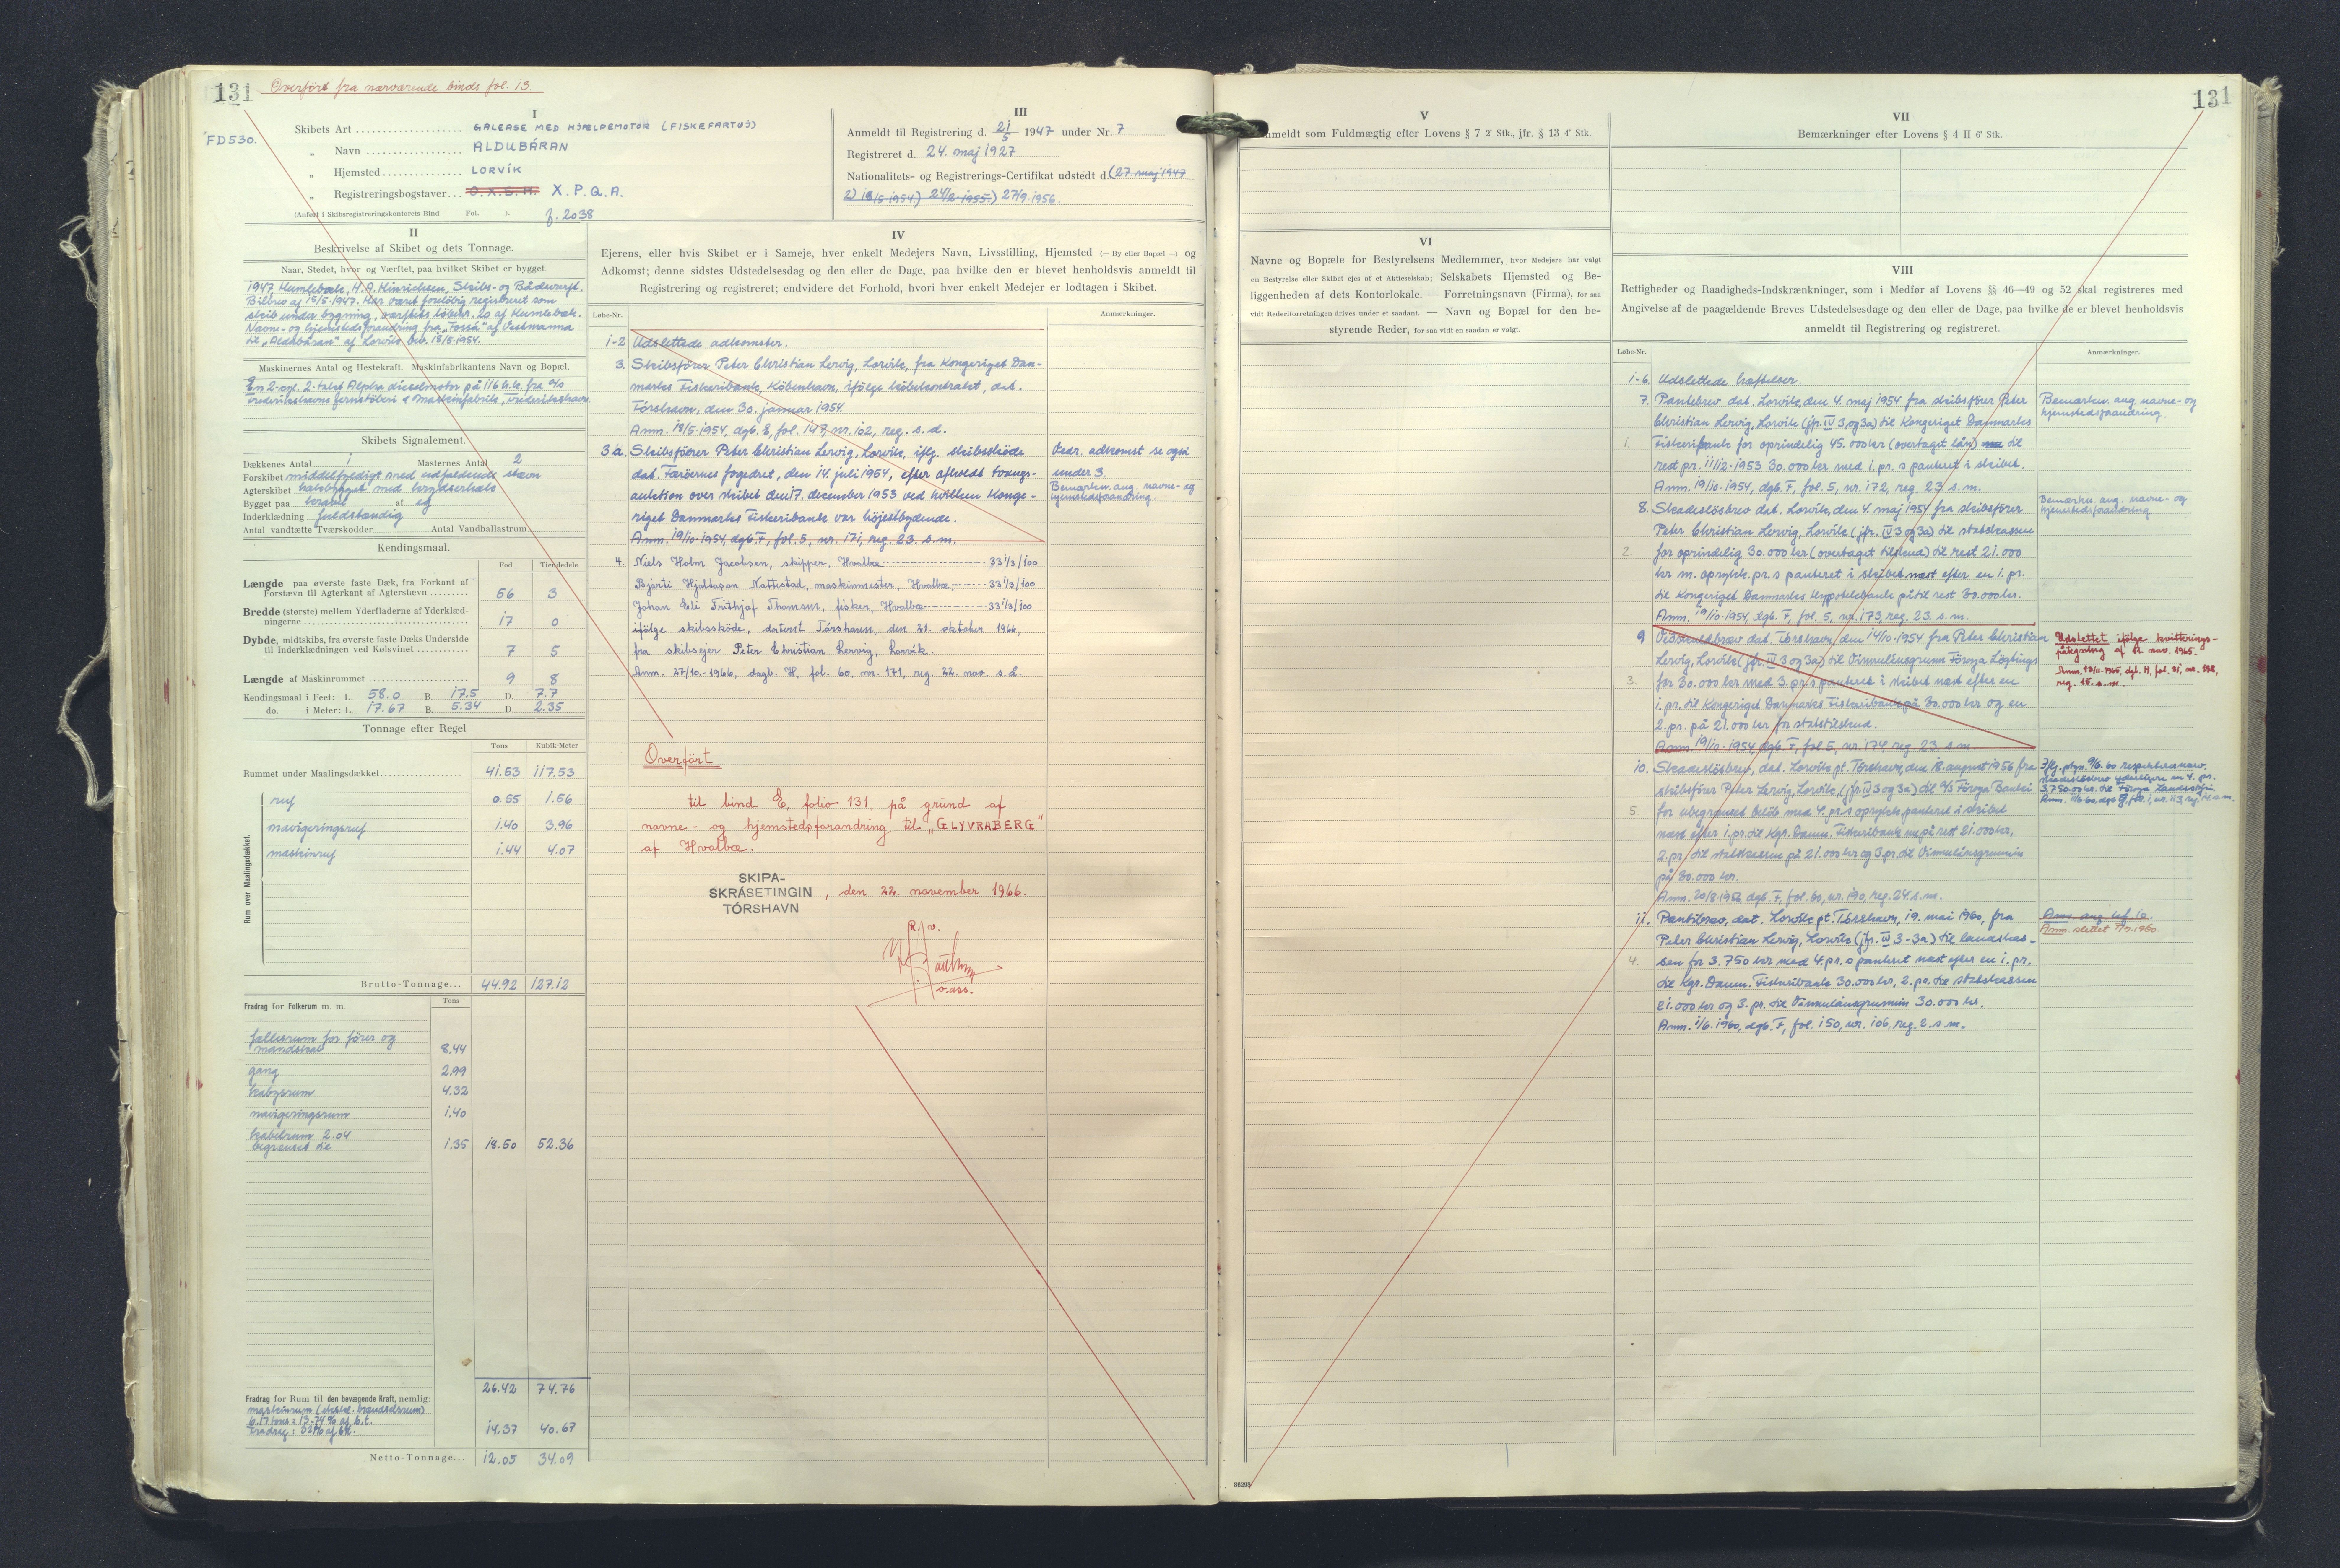 131
Overført fra nærværende binds fol. 13.
FD530.
I
Skibets Art GALEASE MED HJÆLPEMOTOR (FISKEFARTØJ)
„ Navn ALDUBÁRAN
„ Hjemsted LORVÍK
„ Registreringsbogstaver O.X.S.M. X.P.Q.A.
(Anført i Skibsregistreringskontorets Bind Fol. ). f. 2038
II
Beskrivelse af Skibet og dets Tonnage.
Naar, Stedet, hvor og Værftet, paa hvilket Skibet er bygget.
1947 Humlebæk, H.A. Hinrichsen, Skibs- og Bådeværft.
Bilbrev af 18/5-1947. Har været foreløbig registreret som
skib under bygning, værftets løbenr. 20 af Humlebæk.
Navne- og hjemstedsforandring fra „Fossá" af Vestmanna
til „Aldubáran" af Lorvík bev. 18/5-1954.
Maskinernes Antal og Hestekraft. Maskinfabrikantens Navn og Bopæl.
En 2-cyl. 2-takt Alpha dieselmotor på 116 h.k. fra a/s
Frederikshavns Jernstøberi & Maskinfabrik, Frederikshavn
Skibets Signalement.
Dækkenes Antal 1 Masternes Antal 2
Forskibet middelfyldigt med udfaldende stævn
Agterskibet halvbygget med krydserhæk
Bygget paa kravel af eg
Inderklædning fuldstændig
Antal vandtætte Tværskodder Antal Vandballastrum
Kendingsmaal.
Fod Tiendedele
Længde paa øverste faste Dæk, fra Forkant af
Forstævn til Agterkant af Agterstævn 56 3
Bredde (største) mellem Yderfladerne af Yderklæd-
ningerne 17 0
Dybde, midtskibs, fra øverste faste Dæks Underside
til Inderklædningen ved Kølsvinet 7 5
Længde af Maskinrummet 9 8
Kendingsmaal i Feet: L. 58.0 B. 17.5 D. 7.7
do. i Meter: L. 17.67 B. 5.34 D. 2.35
Tonnage efter Regel
Tons Kubik-Meter
Rummet under Maalingsdækket 41.53 117.53
Rum over Maalingsdækket.
ruf 0.55 1.56
navigeringsruf 1.40 3.96
maskinruf 1.44 4.07
Brutto-Tonnage... 44.92 127.12
Fradrag for Folkerum m. m. Tons
fællesrum for fører og
mandskab 8.44
gang 2.99
kabysrum 4.32
navigeringsrum 1.40
kabelrum 2.04
begrænset til 1.35 18.50 52.36
26.42 74.76
Fradrag for Rum til den bevægende Kraft, nemlig:
maskinrum (ekskl. brændselsrum)
6.17 tons = 13.74% af b.t.
Fradrag: 32% af b.t. 14.37 40.67
Netto-Tonnage... 12.05 34.09
III
Anmeldt til Registrering d. 21/5 1947 under Nr. 7
Registreret d. 24. maj 1927
Nationalitets- og Registrerings-Certifikat udstedt d. (27. maj 1947
2) 18/5-1954) 24/2-1955) 27/9.1956.
IV
Ejerens, eller hvis Skibet er i Sameje, hver enkelt Medejers Navn, Livsstilling, Hjemsted (— By eller Bopæl —) og
Adkomst; denne sidstes Udstedelsesdag og den eller de Dage, paa hvilke den er blevet henholdsvis anmeldt til
Registrering og registreret; endvidere det Forhold, hvori hver enkelt Medejer er lodtagen i Skibet.
Løbe-Nr. Anmærkninger.
1-2 Udslettede adkomster.
3. Skibsfører Peter Christian Lervig, Lorvík, fra Kongeriget Dan-
marks Fiskeribank, København, ifølge købekontrakt, dat.
Tórshavn, den 30. januar 1954.
Anm. 18/5-1954, dgb. E, fol. 147, nr. 102, reg. s. d.
3 a. Skibsfører Peter Christian Lervig, Lorvík, iflg. skibsskøde
dat. Færøernes fogedret, den 14. juli 1954, efter afholdt tvangs-
auktion over skibet den 17. december 1953 ved hvilken Konge-
riget Danmarks Fiskeribank var højestbydende.
Anm. 19/10-1954, dgb. F, fol. 5, nr. 171, reg. 23. s.m.
Vedr. adkomst se også
under 3.
Bemærkn. ang. navne- og
hjemstedsforandring.
4. Niels Holm Jacobsen, skipper, Hvalbø 33 1/3/100
Bjarti Hjaltason Nattestad, maskinmester, Hvalbø 33 1/3/100
Johan Eli Frithjof Thomsen, fisker, Hvalbø 33 1/3/100
ifølge skibsskøde, dateret Tórshavn, den 21. oktober 1966,
fra skibsejer Peter Christian Lervig, Lorvík.
Anm. 27/10.-1966, dagb. H, fol. 60, nr. 171, reg. 22. nov. s.d.
Overført
til bind E, folio 131. på grund af
navne- og hjemstedsforandring til „GLYVRABERG"
af Hvalbø.
SKIPA-
SKRÁSETINGIN
TÓRSHAVN
, den 22. november 1966.
131
V
Anmeldt som Fuldmægtig efter Lovens § 7 2' Stk., jfr. § 13 4' Stk.
VI
Navne og Bopæle for Bestyrelsens Medlemmer, hvor Medejere har valgt
en Bestyrelse eller Skibet ejes af et Aktieselskab; Selskabets Hjemsted og Be-
liggenheden af dets Kontorlokale. — Forretningsnavn (Firma), for saa
vidt Rederiforretningen drives under et saadant. — Navn og Bopæl for den be-
styrende Reder, for saa vidt en saadan er valgt.
86205
VII
Bemærkninger efter Lovens § 4 II 6' Stk.
VIII
Rettigheder og Raadigheds-Indskrænkninger, som i Medfør af Lovens §§ 46—49 og 52 skal registreres med
Angivelse af de paagældende Breves Udstedelsesdag og den eller de Dage, paa hvilke de er blevet henholdsvis
anmeldt til Registrering og registreret.
Løbe-Nr. Anmærkninger.
1-6. Udslettede hæftelser.
7. Pantebrev dat. Lorvík, den 4. maj 1954 fra skibsfører Peter
Christian Lervig, Lorvík (jfr. IV 3 og 3a) til Kongeriget Danmarks
1. Fiskeribank for oprindelig 45.000 kr (overtaget lån) til
rest pr. 11/12-1953 30.000 kr med 1. pr.s panteret i skibet.
Anm. 19/10-1954, dgb. F, fol. 5, nr. 172, reg. 23 s.m.
Bemærkn. ang. navne- og
hjemstedsforandring.
8. Skadesløsbrev dat. Lorvík, den 4. maj 1954 fra skibsfører
Peter Christian Lervig, Lorvík (jfr. IV 3 og 3a) til statskassen
2. for oprindelig 30.000 kr (overtaget tilskud) til rest 21.000
kr m. oprykk. pr.s panteret i skibet næst efter en 1. pr.
til Kongeriget Danmarks Hypotekbank på til rest 30.000 kr.
Anm. 19/10-1954, dgb. F, fol. 5, nr. 173, reg. 23. s.m.
Bemærkn. ang. navne- og
hjemstedsforandring
9 Veðskuldbræv dat. Tórshavn, den 14/10-1954 fra Peter Christian
Lervig, Lorvík (jfr. IV 3 og 3a) til Vinnulánsgrunn Føroya Løgtings
3. for 30.000 kr med 3. pr.s panteret i skibet næst efter en
1. pr. til Kongeriget Danmarks Fiskeribank på 30.000 kr og en
2. pr. på 21.000 kr for statstilskud.
Anm. 19/10-1954, dgb. F, fol. 5, nr. 174, reg. 23. s.m.
Udslettet ifølge kvitterings-
påtegning af 11. nov. 1965.
10. Skadesløsbrev, dat. Lorvík pt. Tórshavn, den 18. august 1956 fra
skibsfører Peter Lervig, Lorvík, (jfr. IV 3 og 3a) til A/S Føroya Banki
5 for ubegrænset beløb med 4. pr.s oprykk. panteret i skibet
næst efter 1. pr. til Kgr. Danm. Fiskeribank på rest 21.000 kr,
2. pr. til statskassen på 21.000 kr og 3. pr. til Vinnulánsgrunnin
på 30.000 kr.
Anm. 20/8-1956, dgb. F, fol. 60, nr. 190, reg. 24. s.m.
11. Pantebrev, dat. Lorvík pt. Tórshavn, 19. mai 1960, fra
Peter Christian Lervig, Lorvík (jfr. IV 3-3a) til landskas-
4. sen for 3.750 kr med 4. pr.s panteret næst efter en 1. pr.
til Kgr. Danm. Fiskeribank 30.000 kr, 2. pr. til statskassen
21.000 kr og 3. pr. til Vinnulánsgrunnin 30.000 kr.
Anm. 1/6.1960, dgb. F, fol. 150, nr. 106, reg. 2. s.m.